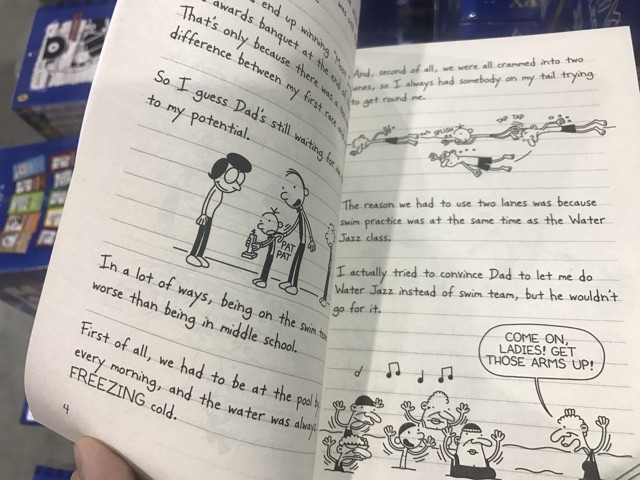 end up winning "Most
awards banquet at the end of
That's only because there was a
difference between my first race and
So I guess Dad's still waiting for
to my potential.
PAT
PAT
In a lot of ways, being on the swim
worse than being in middle school.
First of all, we had to be at the pool by
every morning, and the water was always
FREEZING cold.
4
And, second of all, we were all crammed into two
lanes, so I always had somebody on my tail trying
to get round me.
SPLUSH
TAP TAP
The reason we had to use two lanes was because
swim practice was at the same time as the Water
Jazz class.
I actually tried to convince Dad to let me do
Water Jazz instead of swim team, but he wouldn't
go for it.
COME ON,
LADIES! GET
THOSE ARMS UP!